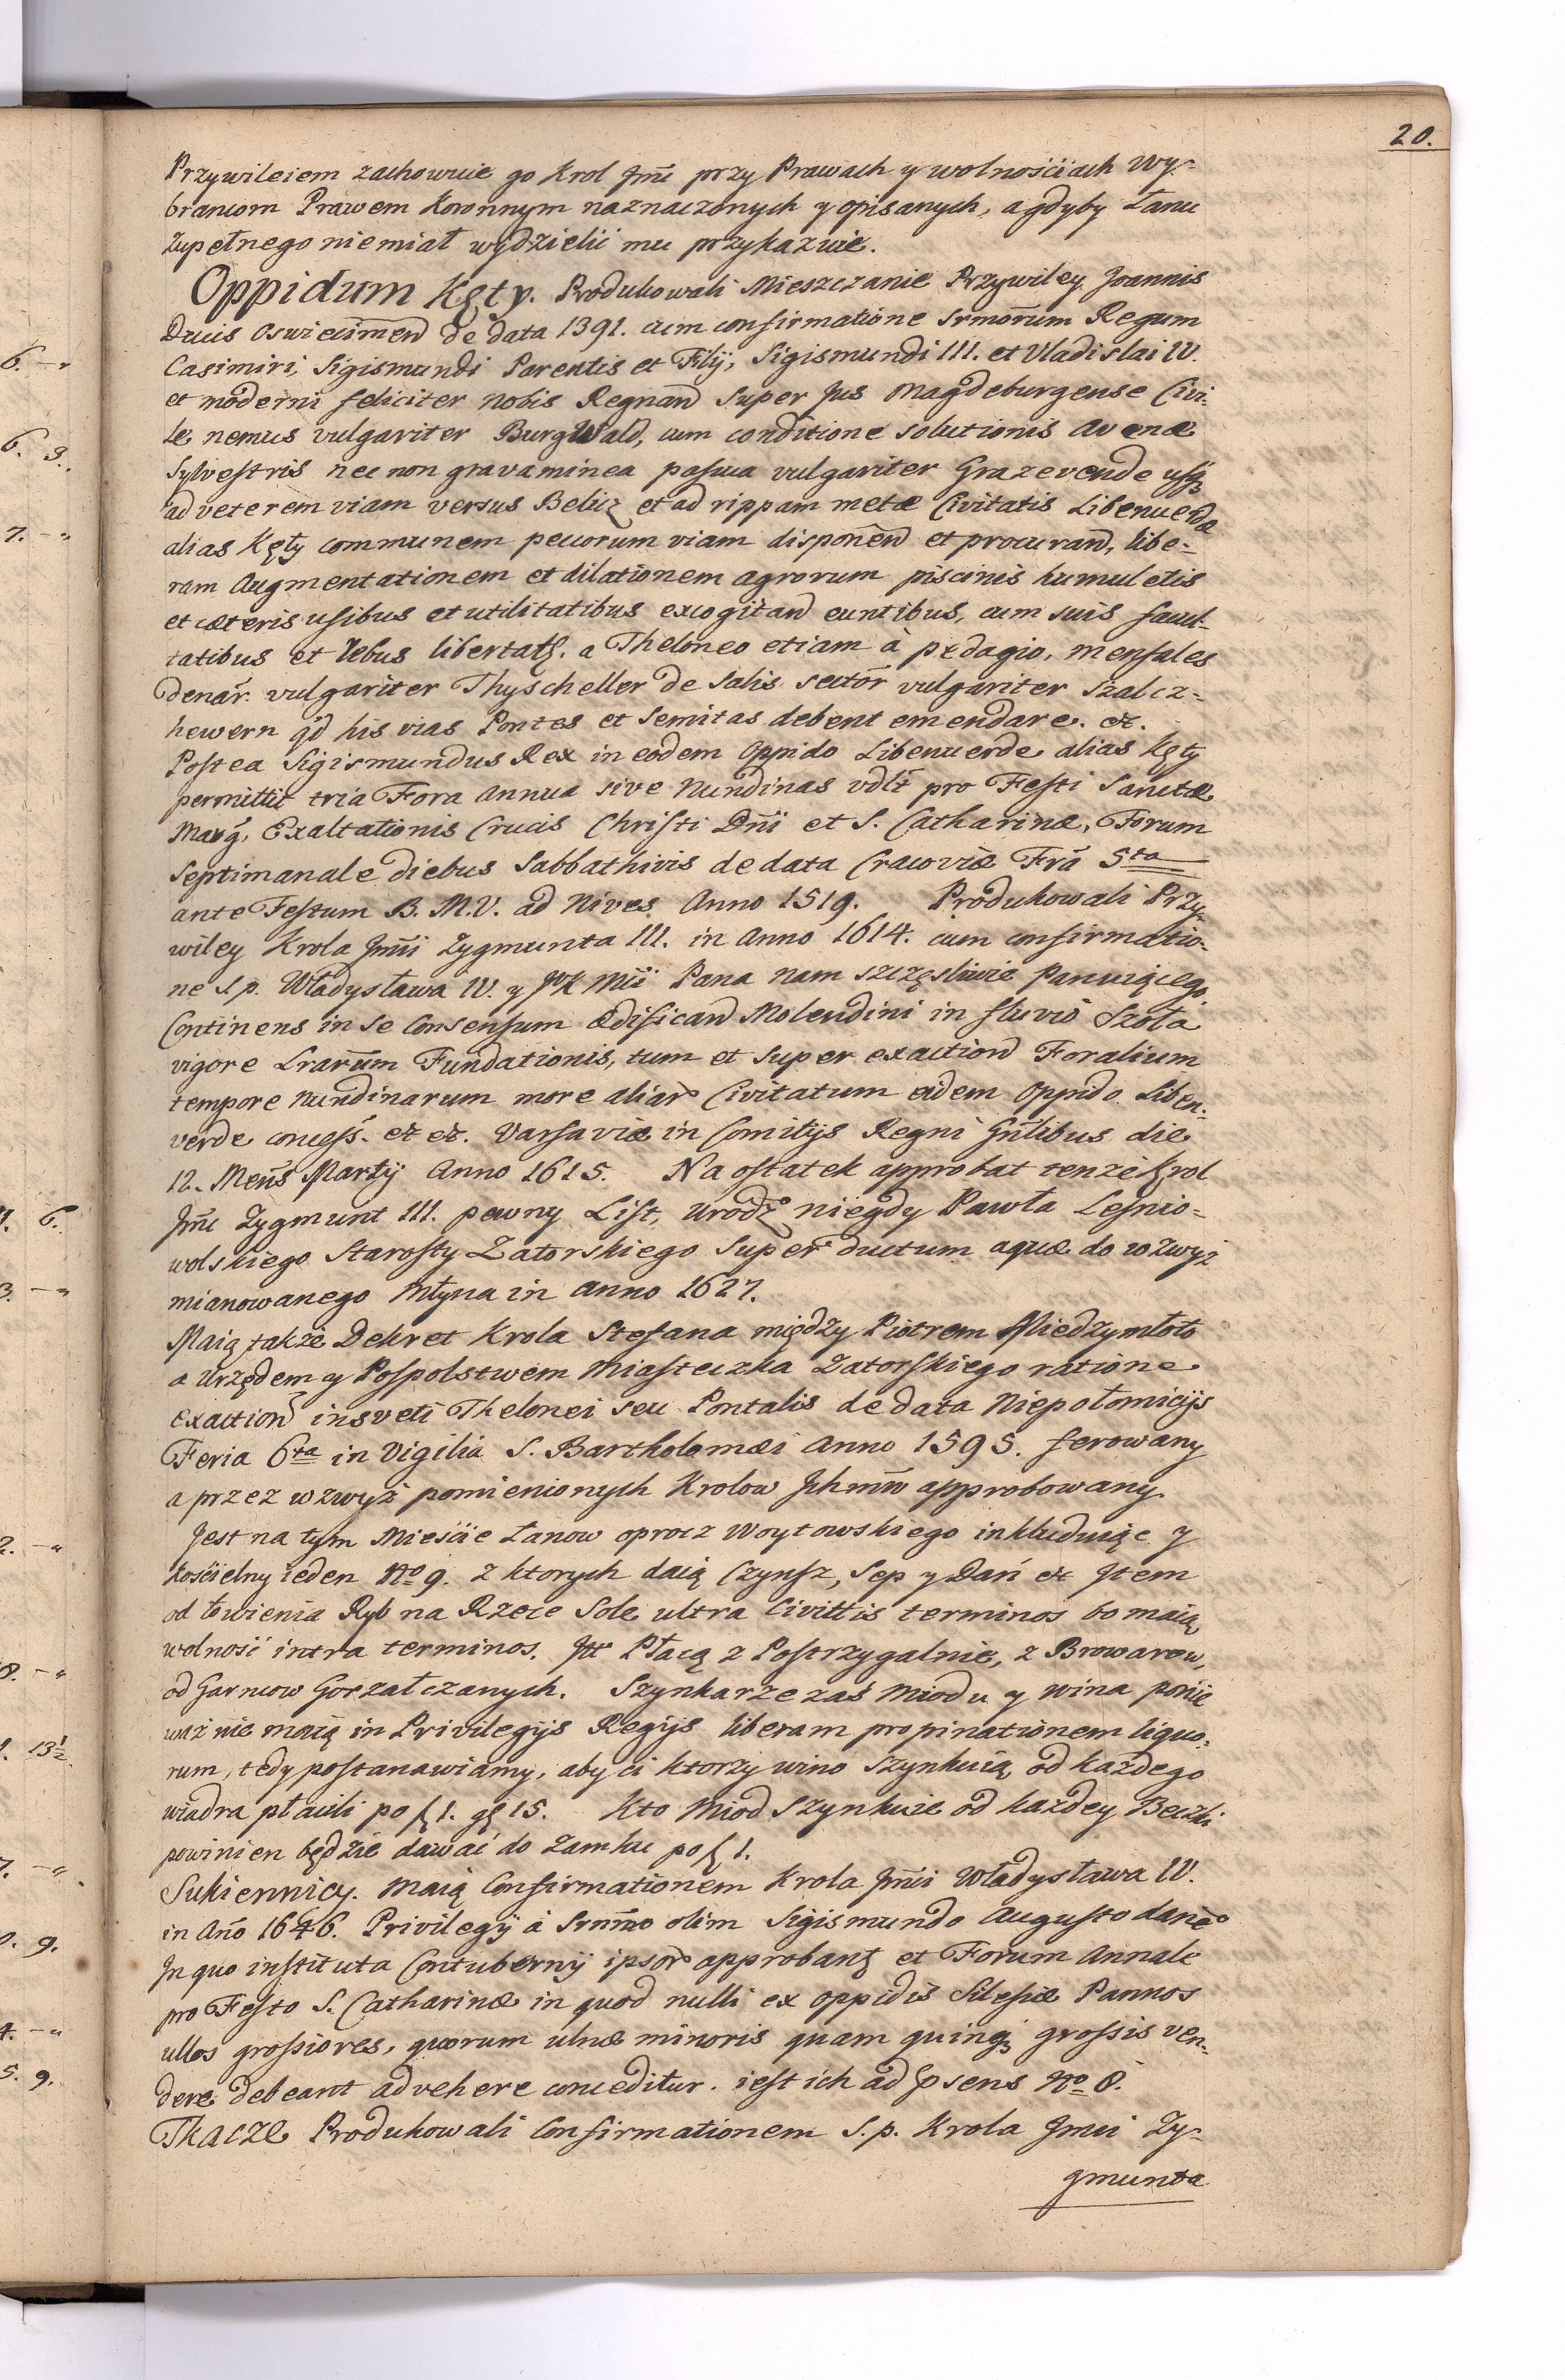 20.
Przywileiem zachowuie go Krol Jmć przy Prawach y wolnościach Wy-
brancom Prawem Koronnym naznaczonych y opisanych, a gdyby Łanu
zupełnego niemiał wydzielić mu przykazuie.
Oppidum Kęty. Produkowali Mieszczanie Przywiley Joannis
Ducis Oswiecimen de data 1391. cum confirmatione Srmorum Regum
Casimiri, Sigismundi Parentis et Filij, Sigismundi III. et Vladislai IV.
et moderni feliciter nobis Regnan Super Jus Magdeburgense Civi-
le, nemus vulgariter BurgWald, cum conditione solutionis Avenæ
Sylvestris nec non gravaminea pascua vulgariter Grazevende usq
ad veterem viam versus Belicz et ad rippam metæ Civitatis Libenuerdæ
alias Kęty communem pecorum viam disponen et procuran, libe-
ram Augmentationem et dilationem agrorum piscinis humuletis
et cæteris usibus et utilitatibus excogitan euntibus, cum suis facul-
tatibus et rebus libertatę. a Theloneo etiam à pedagio, mensales
denar. vulgariter Thyscheller de Salis sector vulgariter Szalcz-
hewern qd his vias Pontes et Semitas debent emendare. etc.
Postea Sigismundus Rex in eodem Oppido Libenuerde alias Kęty
permittit tria Fora Annua sive Nundinas vdlt pro Festi Sanctæ
Marg, Exaltationis Crucis Christi Dni et S. Catharinæ, Forum
Septimanale diebus Sabbathivis de data Cracoviæ Fra 5ta
ante Festum B. M. V. ad Nives Anno 1519. Produkowali Przy
wiley Krola Jmci Zygmunta III. in Anno 1614. cum confirmatio-
ne S. p. Władysława IV. y JK Mci Pana nam szczęsliwie panuiącego
Continens in se Consensum ædifican Molendini in fluvio Szoła
vigore Lrarum Fundationis, tum et super exaction Foralium
tempore Nundinarum more aliar Civitatum eidem Oppido Liben-
verde concess. etc etc. Varsaviæ in Comitijs Regni Gnlibus die
12. Mens Martij Anno 1615. Na ostatek approbat tenże Krol
Jmc Zygmunt III. pewny List, Urodz niegdy Pawła Lesnio-
wolskiego Starosty Zatorskiego Super ductum aquæ do wzwyż
mianowanego Młyna in anno 1627.
Maią także Dekret Krola Stefana między Piotrem Miedzymłoto
a Urzędem y Pospolstwem Miasteczka Zatorskiego ratione
exaction insveti Thelonei seu Pontalis de data Niepołomicijs
Feria 6ta in Vigilia S. Bartholomæi Anno 1595. ferowany
a przez wzwyż pomienionych Krolow Jchmm approbowany.
Jest na tym Mieście Łanow oprocz Woytowskiego inkluduiąc y
Kościelny ieden No 9. z ktorych daią Czynsz, Sep y Dań etc Jtem
od łowienia Ryb na Rzece Sole ultra Civittis terminos bo maią
wolność intra terminos. Jtt Płacą z Postrzygalnie, z Browarow,
od Garncow Gorzałczanych. Szynkarze zaś Miodu y wina ponie
waż nie maią in Privilegijs Regijs liberam propinationem liquo-
rum, tedy postanawiamy, aby ci ktorzy wino szynkuią od każdego
wiadra płacili po f 1. g 15. Kto Miod szynkuie od każdey Beczki
powinien będzie dawać do Zamku po f 1.
Sukiennicy. Maią Confirmationem Krola Jmci Władysława IV.
in Ano 1646. Privilegij à Srnmo olim Sigismundo Augusto dane
Jn quo instituta Contubernij ipsor approbant et Forum Annale
pro Festo S. Catharinæ in quod nulli ex oppidis Silesiæ Pannos
ullos grossiores, quorum ulnæ minoris quam quinq grossis ven-
dere debeant advehere conceditur. iest ich ad psens No 8.
Tkacze Produkowali Confirmationem S. p. Krola Jmci Zy-
gmunta
6. -"
6. 3.
7. -"
4. 6.
3. -"
2. -"
8. -"
1. 13½
7. -"
0. 9.
4. -"
5. 9.